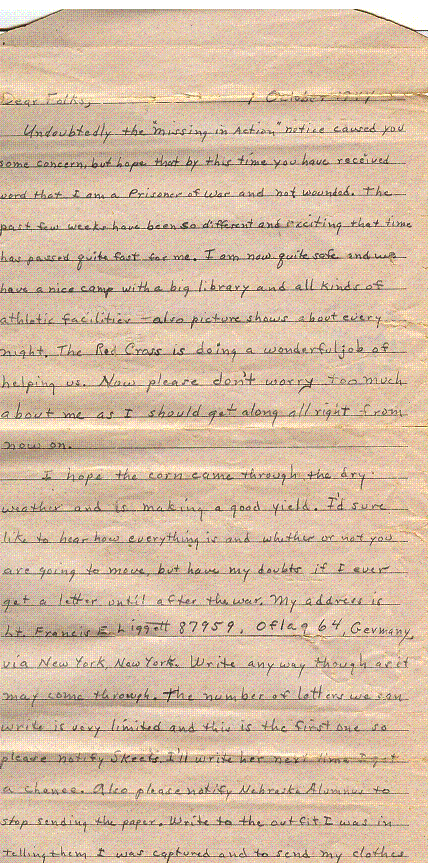 Dear Folks, 1 October 1944
Undoubtedly the "missing in Action" notice caused you
some concern, but hope that by this time you have received
word that I am a Prisoner of War and not wounded. The
past few weeks have been so different and exciting that time
has passed quite fast for me. I am now quite safe and we
have a nice camp with a big library and all kinds of
athletic facilities - also picture shows about every
night. The Red Cross is doing a wonderful job of
helping us. Now please don't worry too much
about me as I should get along all right from
now on.
I hope the corn came through the dry
weather and is making a good yield. I'd sure
like to hear how everything is and whether or not you
are going to move, but have my doubts if I ever
get a letter until after the war. My address is
Lt. Francis E Liggett 87959, Oflag 64, Germany,
via New York, New York. Write anyway though as it
may come through. The number of letters we can
write is very limited and this is the first one so
please notify Skeets. I'll write her next time I get
a chance. Also please notify Nebraska Alumnus to
stop sending the paper. Write to the outfit I was in
telling them I was captured and to send my clothes